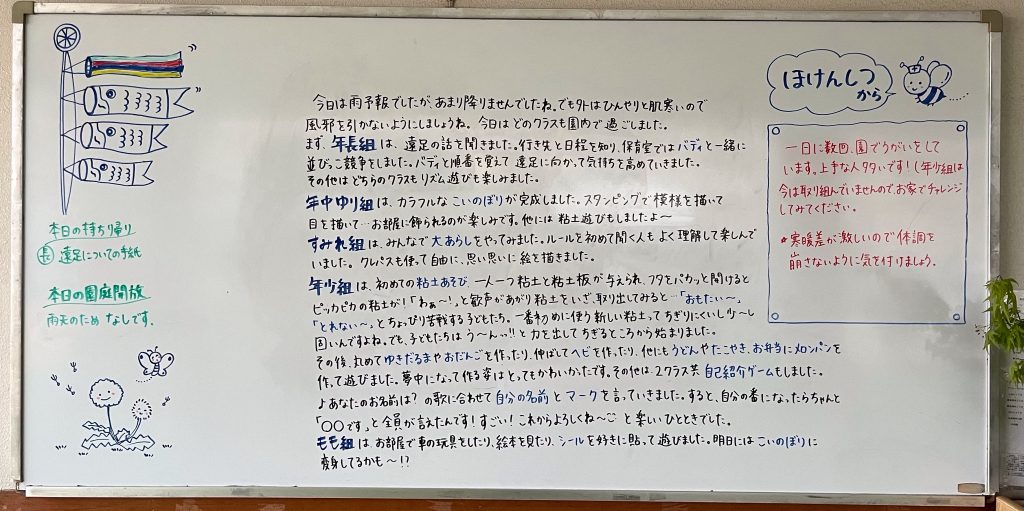 本日の持ち帰り
長 遠足についての手紙
本日の園庭開放
雨天のため なしです.
今日は雨予報でしたが、あまり降りませんでしたね。でも外はひんやりと肌寒いので
風邪を引かないようにしましょうね。今日は どのクラスも園内で過ごしました。
まず、年長組は、遠足の話を聞きました。行き先と日程を知り、保育室ではバディと一緒に
並びっこ競争をしました。バディと順番を覚えて 遠足に向かって気持ちを高めていきました。
その他はどちらのクラスも リズム遊びも楽しみました。
年中ゆり組は、カラフルな こいのぼりが完成しました。スタンピングで模様を描いて
目を描いて…お部屋に飾られるのが楽しみです。他には 粘土遊びもしましたよ〜
すみれ組は、みんなで 大あらしをやってみました。ルールを初めて聞く人も よく理解して楽しんで
いました。 クレパスも使って自由に、思い思いに 絵を描きました。
年少組は、初めての粘土あそび. 一人一つ粘土と粘土板が与えられ、フタをパカッと開けると
ピッカピカの粘土が!「わぁ〜!」と歓声があがり粘土をいざ、取り出してみると…「おもたい〜」
「とれない〜」と ちょっぴり苦戦する子どもたち。一番初めに使う新しい粘土って ちぎりにくいし少〜し
固いんですよね。でも、子どもたちは う〜んっ!! と力を出して ちぎるところから始まりました。
その後、丸めて ゆきだるまや おだんごを作ったり、伸ばして ヘビを作ったり、他にも うどんや たこやき、お弁当に メロンパンを
作って遊びました。夢中になって作る姿は とってもかわいかったです。その他は、2クラス共 自己紹介ゲームもしました。
♪あなたのお名前は? の歌に合わせて 自分の名前 と マークを言っていきました。すると、自分の番になったらちゃんと
「〇〇です」と全員が言えたんです! すごい! これからよろしくね〜 と 楽しいひとときでした。
モモ組は、お部屋で車の玩具をしたり、絵本を見たり、シールを好きに貼って遊びました。明日には こいのぼりに
変身してるかも〜!?
ほけんしつ
から
一日に数回、園でうがいをして
います。上手な人タタいです! (年少組は
今は取り組んでいませんので、お家でチャレンジ
してみてください。
* 寒暖差が激しいので体調を
崩さないように気を付けましょう.